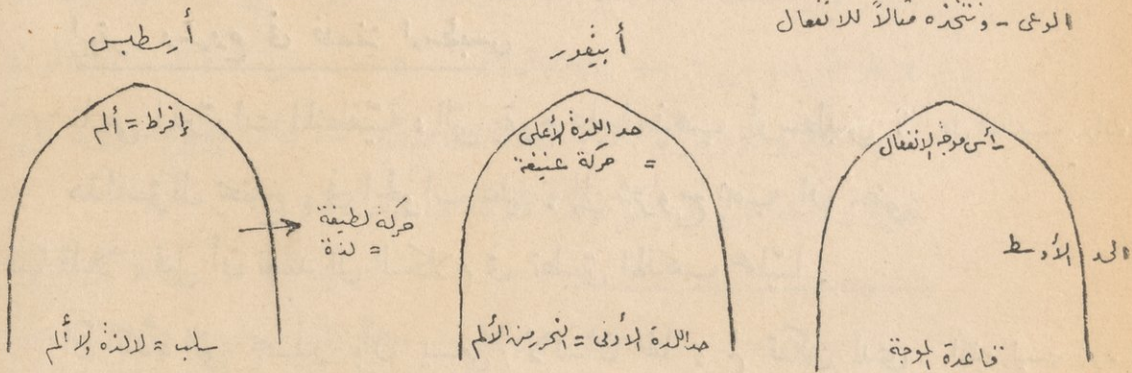 الوعى - ونتخذه مثالاً للانفعال
رأس موجة الانفعال
الحد الأوسط
قاعدة الموجة
أبيقور
حد اللذة الأعلى
= حركة عنيفة
حد اللذة الأدنى = التحرر من الألم
أرسطبس
إفراط = ألم
حركة لطيفة
= لذة
سلب = لا لذة ولا ألم